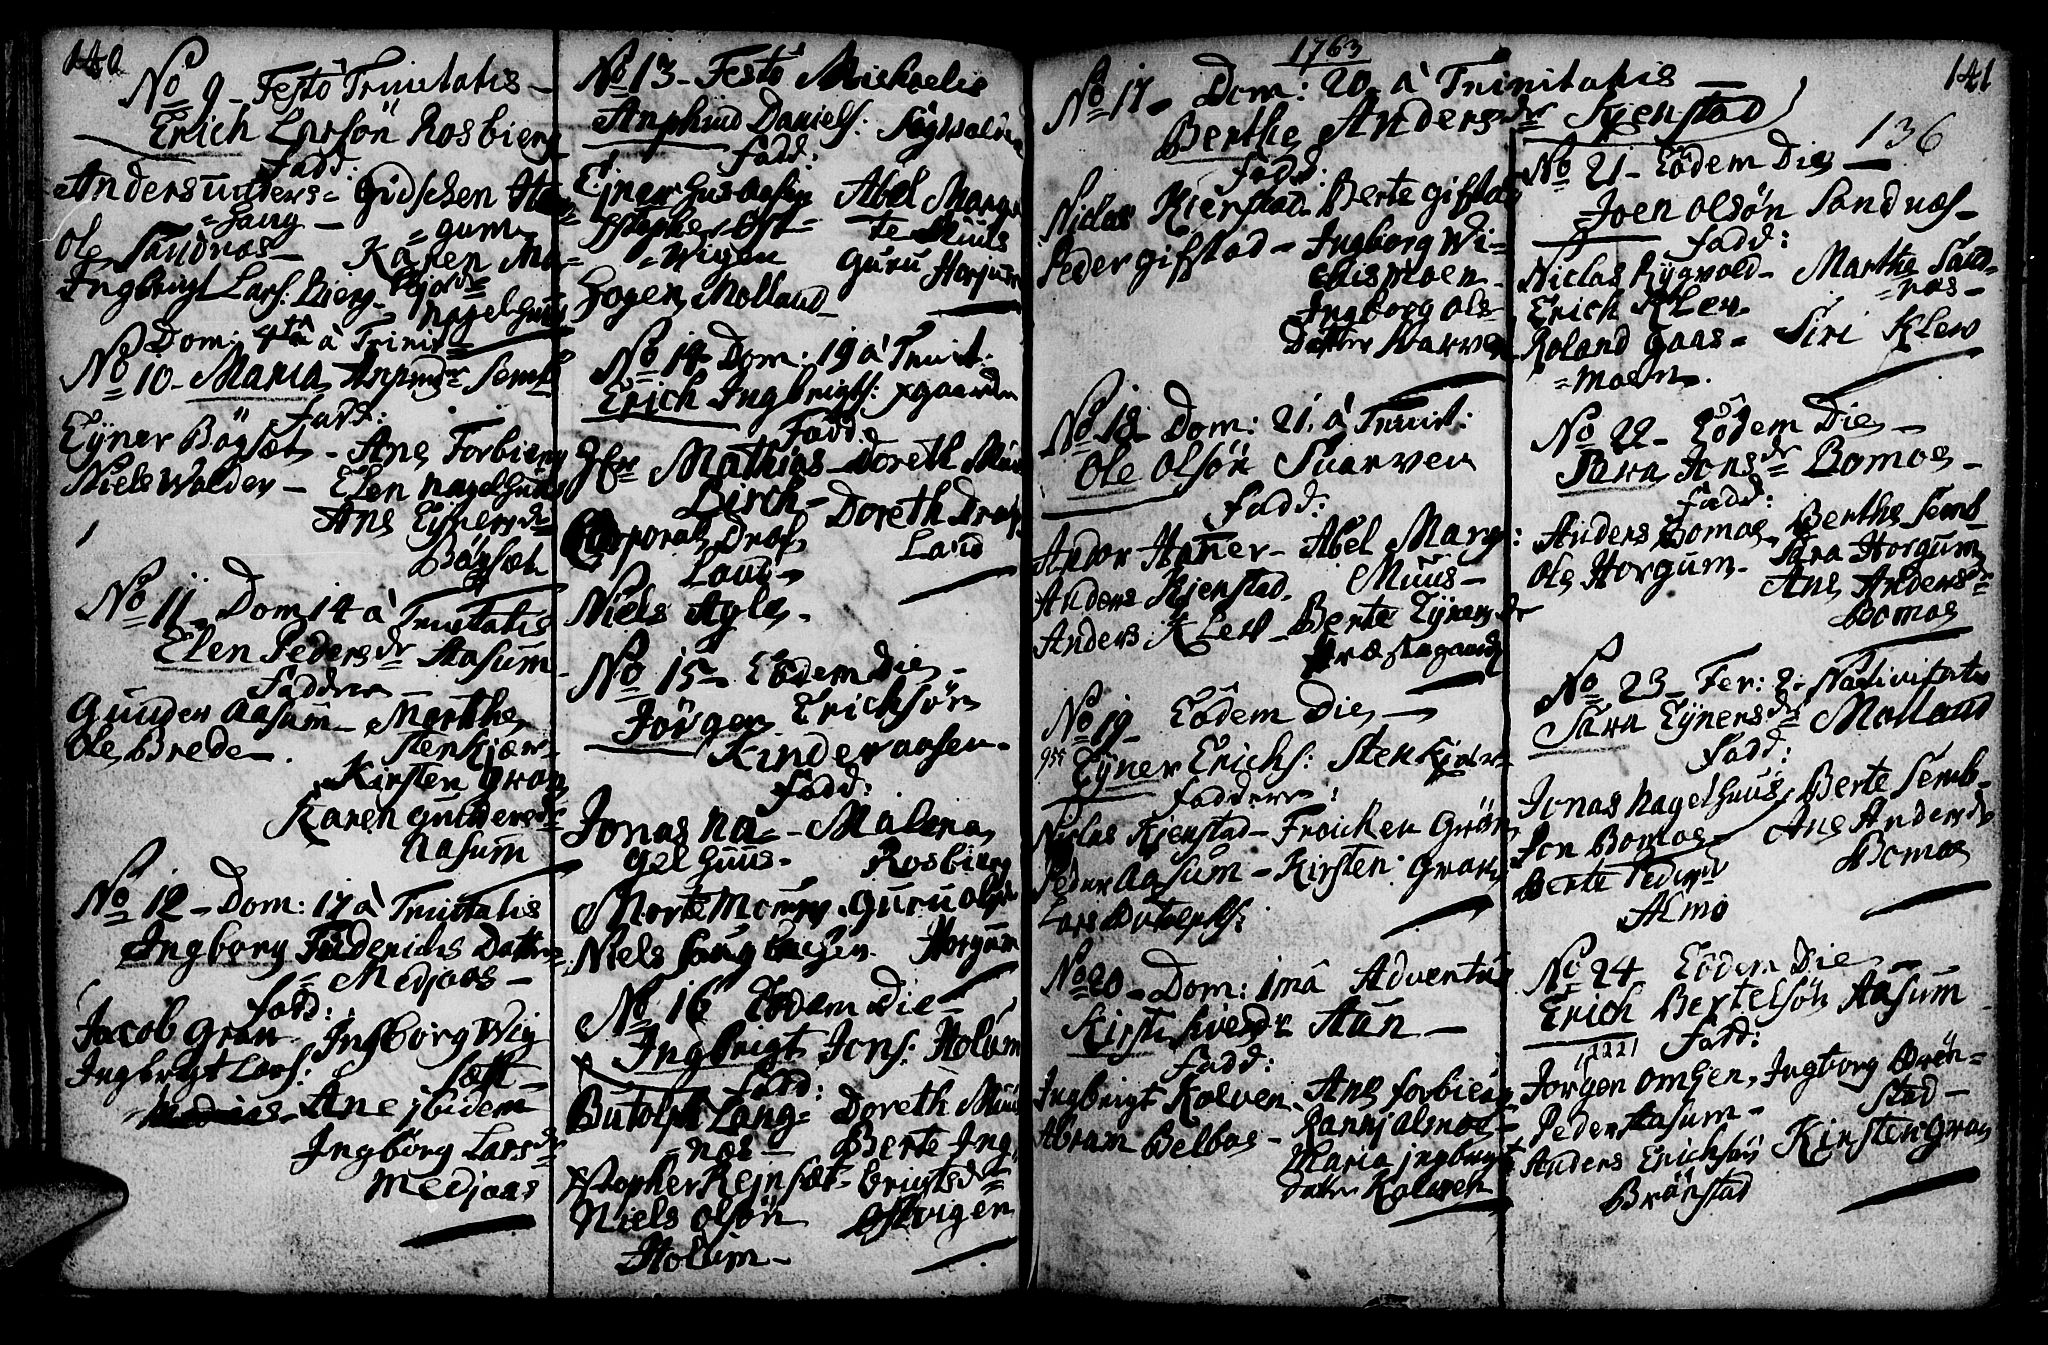 140
No 9 - Festô Trinitatis -
Erich Larsön Rosbierg
Fadd:
Anders Unders= Gidschen Ha=
=haug - =gum
Ole Sandnæs - Karen Ma=
Ingbrigt Lars: Bierg -
Nagelhuus
Dom: 4ta à Trinit
No 10 - Maria Semb
Fadd:
Eÿner Bögset - Ane Forbierg
Niels Walder - Elen Nagelhuus
Ane Eÿnersdr
Bögset
No 11 - Dom 14 à Trinitatis
Elen Pedersdr Aasum -
Faddere -
Gunder Aasum - Marthe
Ole Brede - Stenkjær
Kirsten Gran
Karen Gundersdr
Aasum
No 12 - Dom: 17 à Trinitatis
Ingborg Friderichs Datter
= Medjaas -
Fadd:
Jacob Gran - Ingborg Wig
Ingbrigt Lars: sæst -
Medjaas - Ane jbidem
Ingborg Larsdr
Medjaas
No 13 - Festô Michaelis
Anphind Daniels:
Fadd:
Ejner Gustafsen Abel Margre
Xstopher Öst= te Muus
=Wigen Guru Horjum
Hogen Molland -
No 14 - Dom: 19 à Trinit:
Erich Ingbrigts: xgaarden
Fadd:
Hr Mathias - Doreth Muus
Birch - Doreth Drog
Corporal Drog Land
Land -
Niels Agle -
No 15 - Eôdem Die -
Jörgen Erichsön
Kinderaasen -
Fadd:
Jonas Na= - Malena
gelhuus - Rosbierg
Morte - Guru Ols
Niels Horgum
No 16 Eôdem Die -
Ingbrigt Jons: Holum
Fadd:
Butolph Lang= Doreth Muus
=næs - Berte Ing
Xstopher Rejnsæt - brigtsdr
Niels Olsön Östvigen
Holum -
1763
141
136
No 17 - Dom: 20 à Trinitatis -
Berthe Andersdr Kjenstad
Fadd:
Niclas Kjerstad - Berte Gifstad
Peder Gifstad - Ingborg Wi=
bismoen -
Ingborg Ols
Datter Skarven
No 18 - Dom: 21 à Trinit:
Ole Olsön Suarven
Fadd:
Andor Haner - Abel Marg:
Anders Kjenstad. Muus -
Anders Klew - Berte Eÿnersdr
Præstegaard
No 19 - Eôdem Die -
Eÿner Erichs: Stenkjær
Faddere:
Niclas Kjenstad - Froichen Grön
Peder Aasum - Kirsten Gran
Lars Butolphs:
No 20 - Dom: 1mâ Adventus
Kirsti Aun -
Fadd:
Ingbrigt Kolven - Ane Forbierg
Abram Belbos - Rannj Alsnæs -
Maria Ingbrigts
datter Kolveh
No 21 - Eôdem Die -
Joen Olsön Sandnæs -
Fadd:
Niclas Rygvold - Marthe Sand=
Erich Klew =næs -
Roland Gaas= Siri Klew
=moen.
No 22 - Eôdem Die -
Sara Jonsdr Bomoe -
Fadd:
Anders Bomoe - Berthe Semb
Ole Horgum - Sara Horgum
Ane Andersdr
Bomoe
No 23 - Fer: 2 Nativitatis
Sara Eÿnersdr Molland
Fadd:
Jonas Nagelhuus, Berte Semb -
Jon Bomoe - Ane Andersdr
Berte Pedersdr Bomoe
Almo
No 24 Eôdem Die -
Erich Bertelsön Aasum
Fadd:
Jorgen Omsen, Ingborg Brön=
Peder Aasum - stad -
Anders Erichsön Kirsten Gran
Brönstad